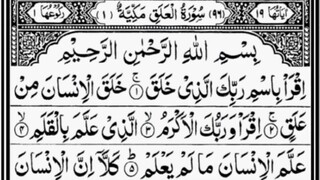 اٰيَاتُهَا ١٩ (٩٦) سُوْرَةُ الْعَلَقِ مَكِّيَّةٌ (١) رُكُوْعُهَا ١
بِسْمِ اللهِ الرَّحْمٰنِ الرَّحِيْمِ
اِقْرَاْ بِاسْمِ رَبِّكَ الَّذِيْ خَلَقَ ۝١ خَلَقَ الْاِنْسَانَ مِنْ
عَلَقٍ ۝٢ اِقْرَاْ وَرَبُّكَ الْاَكْرَمُ ۝٣ الَّذِيْ عَلَّمَ بِالْقَلَمِ ۝٤
عَلَّمَ الْاِنْسَانَ مَا لَمْ يَعْلَمْ ۝٥ كَلَّآ اِنَّ الْاِنْسَانَ